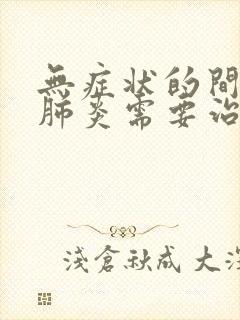 無症状的間
肺炎需要治
淺倉秋成 大深